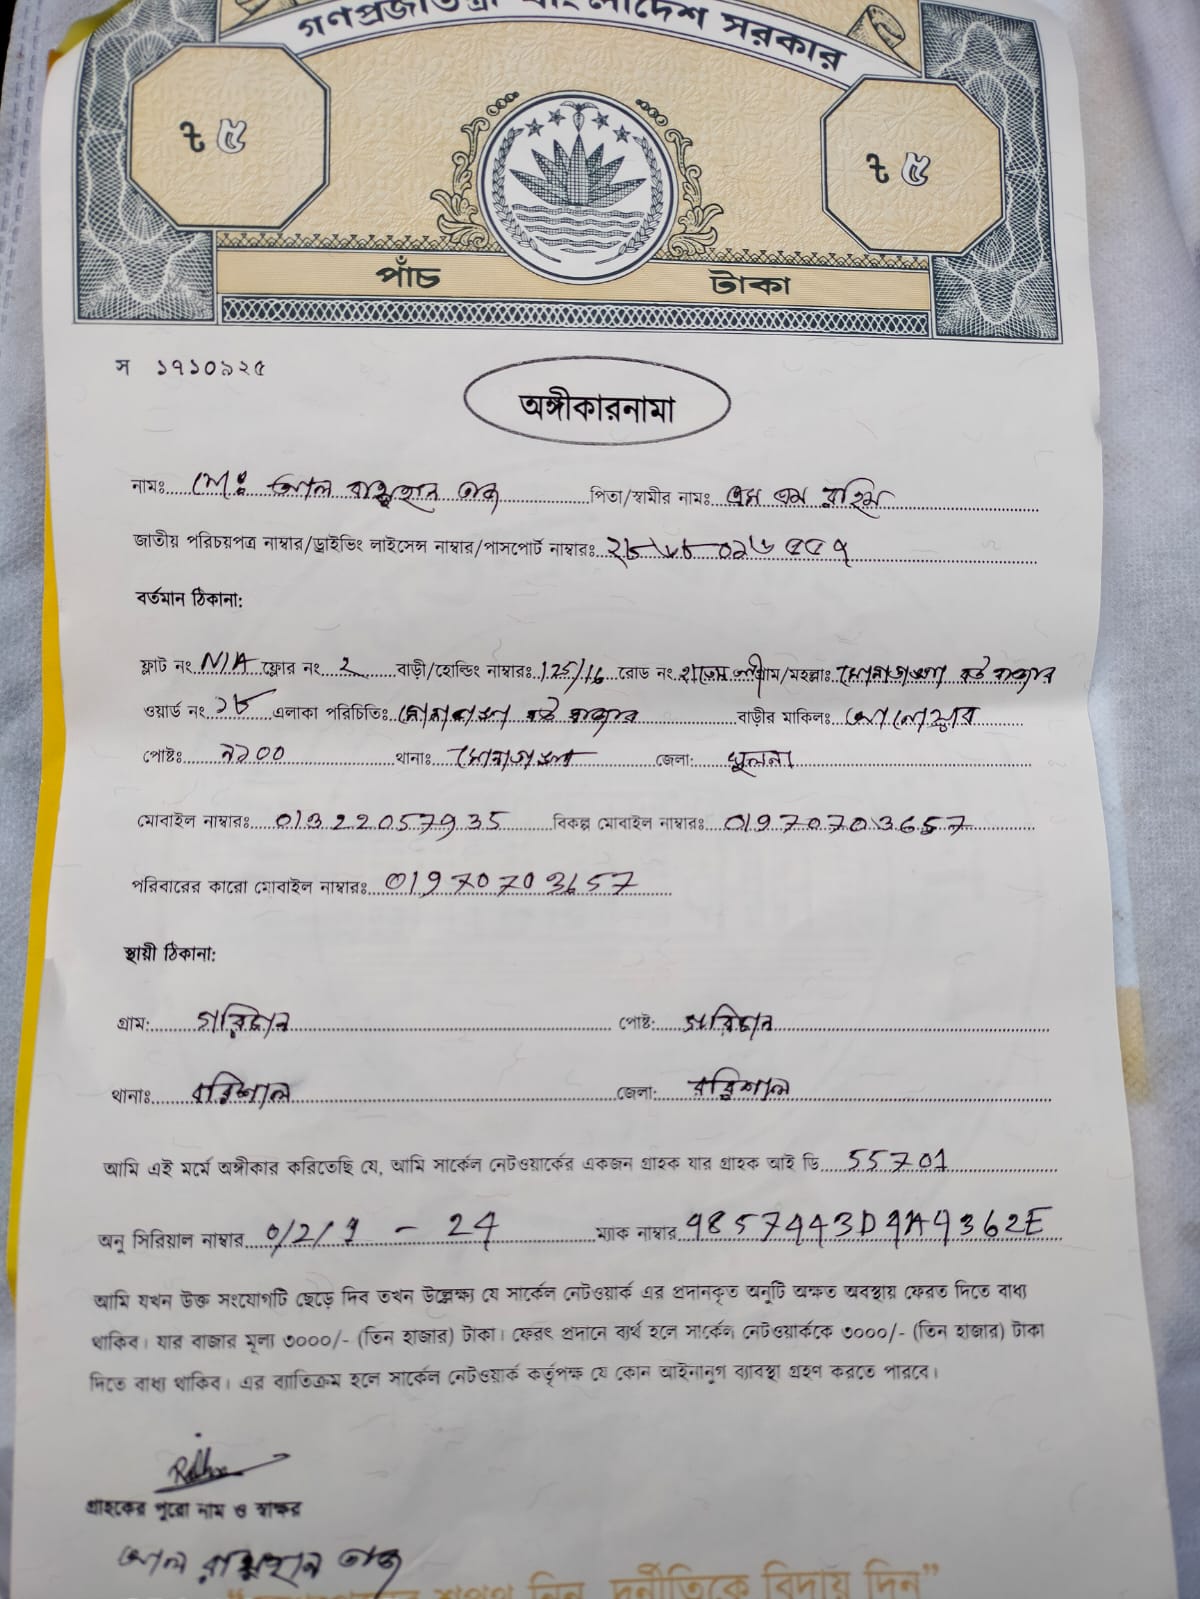 গণপ্রজাতন্ত্রী বাংলাদেশ সরকার
৳ ৫ ৳ ৫
পাঁচ টাকা
স ১৭১০৯২৫
অঙ্গীকারনামা
নামঃ মোঃ আল রায়হান তাজ পিতা/স্বামীর নামঃ এস এম রহিম
জাতীয় পরিচয়পত্র নাম্বার/ড্রাইভিং লাইসেন্স নাম্বার/পাসপোর্ট নাম্বারঃ
বর্তমান ঠিকানা:
ফ্লাট নং N/A ফ্লোর নং 2 বাড়ী/হোল্ডিং নাম্বারঃ 125/16 রোড নং গ্রাম/মহল্লাঃ সোনাডাঙ্গা বউ বাজার
ওয়ার্ড নং ১৮ এলাকা পরিচিতিঃ সোনাডাঙ্গা বউ বাজার বাড়ীর মাকিলঃ আনোয়ার
পোষ্টঃ ৯১00 থানাঃ সোনাডাঙ্গা জেলা: খুলনা
মোবাইল নাম্বারঃ 01322057935 বিকল্প মোবাইল নাম্বারঃ 01970703657
পরিবারের কারো মোবাইল নাম্বারঃ 01970703657
স্থায়ী ঠিকানা:
গ্রাম: পোষ্ট:
থানাঃ বরিশাল জেলা: বরিশাল
আমি এই মর্মে অঙ্গীকার করিতেছি যে, আমি সার্কেল নেটওয়ার্কের একজন গ্রাহক যার গ্রাহক আই ডি 55701
অনু সিরিয়াল নাম্বার 0/2/1 - 24 ম্যাক নাম্বার
আমি যখন উক্ত সংযোগটি ছেড়ে দিব তখন উল্লেক্ষ্য যে সার্কেল নেটওয়ার্ক এর প্রদানকৃত অনুটি অক্ষত অবস্থায় ফেরত দিতে বাধ্য
থাকিব। যার বাজার মূল্য ৩০০০/- (তিন হাজার) টাকা। ফেরৎ প্রদানে ব্যর্থ হলে সার্কেল নেটওয়ার্ককে ৩০০০/- (তিন হাজার) টাকা
দিতে বাধ্য থাকিব। এর ব্যাতিক্রম হলে সার্কেল নেটওয়ার্ক কর্তৃপক্ষ যে কোন আইনানুগ ব্যাবস্থা গ্রহণ করতে পারবে।
গ্রাহকের পুরো নাম ও স্বাক্ষর
আল রায়হান তাজ
শপথ নিন, দুর্নীতিকে বিদায় দিন”